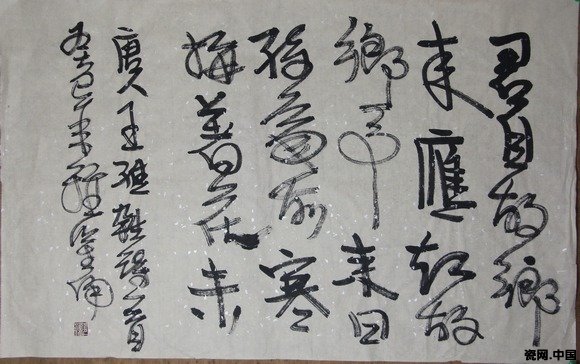 君自故鄉
来應知故
鄉事来日
綺窗前寒
梅著花未
唐人王維雜詩一首
瓷网.中国